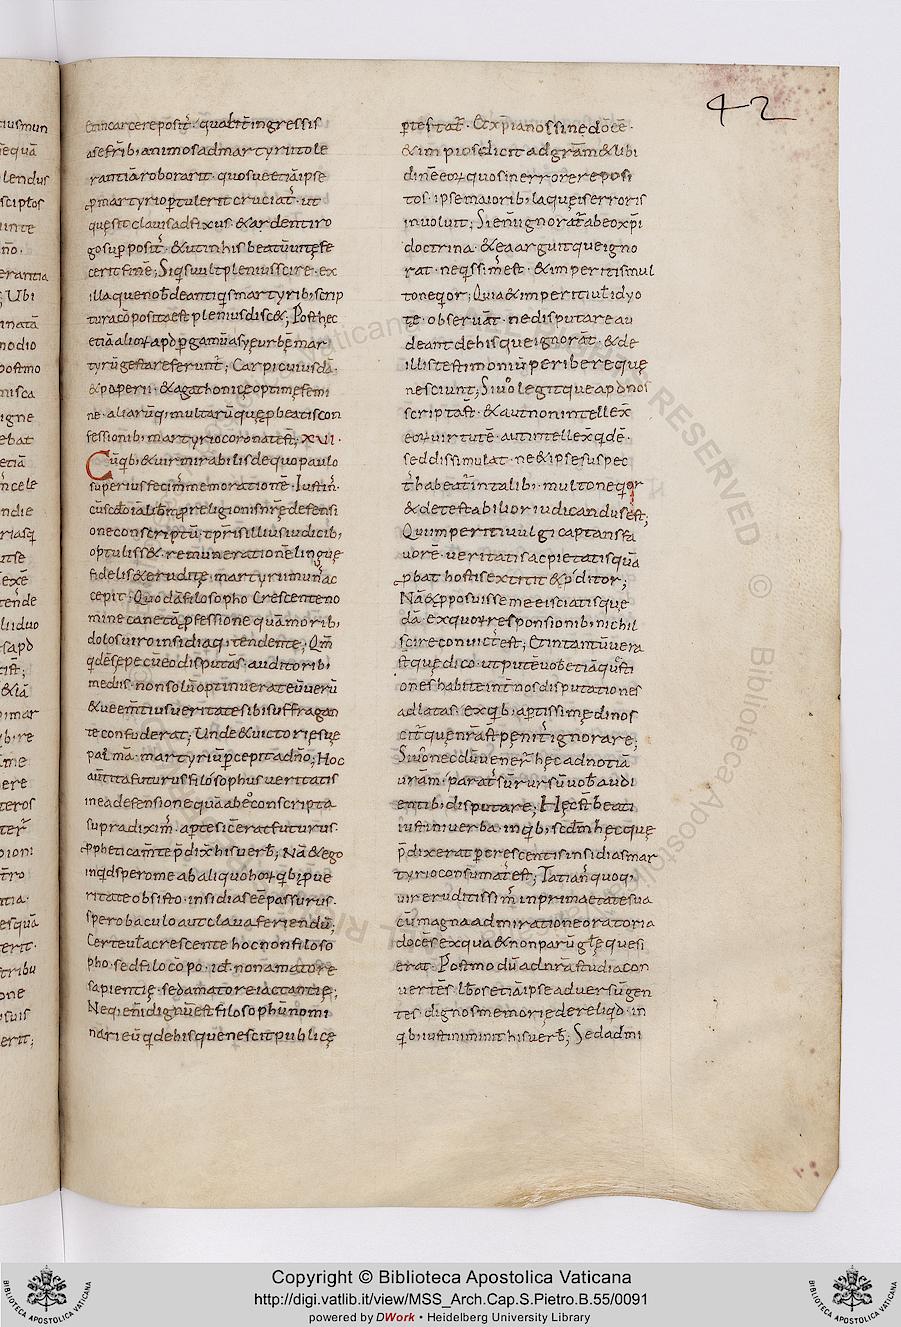 42
et incarcere posit᷒. qualit̄ ingressis
ase fr̄ib; animos ad martyrii tole
rantiā roborarit. quos ue etiā ipse
ꝓ martyrio ꝑtulerit cruciat᷒. ut
quę sit clauis adfixus. & ardenti ro
go suꝑposit᷒. & ut in his beatū uitę fe
cerit finē; Siq̄s uult plenius scire. ex
illa que nob̄ de antiq̄s martyrib; scrip
tura cōposita est plenius disc&; Post hec
etiā alioꝝ apd̄ ꝑgamū asyę urbē mar
tyrū gesta referunt᷒; Carpi cuiusdā.
& paperii. & agathonicę optimę femi
ne. aliarūq; multarū quę ꝑ beatis con
fessionib; martyrio coronatę st̄; XVI.
Cūqb; & uir mirabilis de quo paulo
superius fecim᷒ memorationē. Iustin᷒.
cū scd̄o ia libm̄ ꝑ religionis nrē defensi
one conscriptū. tp̄ris illius iudicib;
optuliss&. remunerationē linguę
fidelis & eruditę. martyrii mun᷒ ac
cepit; Quodā filosopho Crescente no
mine canetā ꝓfessione quā morib;
doloſ uiro insidiaq; tendente; Qm̄
qdē sepe cū eo disputās. auditorib;
mediis. non solū optinuerat eū uerū
& ueem̄tius ueritate sibi suffragan
te confuderat; Unde & uictorię suę
palmā. martyriū ꝑcepit a dn̄o; Hoc
aūt ita futurus filosophus ueritatis
in ea defensione quā ab eo conscripta
supradixim᷒. aꝑte sic̄ erat futurus.
ꝓphetica m̄te p̄dix̄ his uerb̄; Nā & ego
inqd̄ spero me ab aliquo hoꝝ qb; p ue
ritate obsisto. insidias eē passurus.
spero baculo aut claua feriendū;
Certe ul̄ a crescente hoc non filoso
pho. sed filocōpo. id̄. non amatore
sapientię. sed amatore iactantię;
Neq; eni dignū est filosophū nomi
nari eū qd̄e his que nescit publicę
ꝓtestat᷒. & xp̄ianos sine dō eē.
& impios dicit ad gr̄am & libi
dinē eoꝝ quos in errore reposi
tos. ipse maiorib; laqueis erroris
inuoluit; Si eni ignorat᷒ abeo xp̄i
doctrina. & ea arguit que igno
rat. neqssim᷒ est. & imperitis mul
to neqor; Quia & imperiti ul̄ idyo
te. obseruāt. ne disputare au
deant de his que ignorāt. & de
illis testimoniū peribere que
nesciunt; Si uo legit que apd̄ nos
scripta st̄. & aut non intellex̄
eoꝝ uirtutē. aut intellex̄ qdē.
sed dissimulat. ne & ipse suspec
t᷒ habeat᷒ in talib;. multo neqor
& detestabilior iudicandus est;
Qui imperiti uulgi captans fa
uorē. ueritatis ac pietatis quā
ꝓbat hostis extitit & p̄ditor;
Nā & ꝓposuisse me ei sciatis que
dā. ex quoꝝ responsionib; nichil
scire conuict᷒ est; Et in tantū uera
st̄ quę dico. ut putē uob̄ etiā q st̄i
onēs habite int᷒ nos disputationes
adlatas. ex qb; aꝑtissimę dinos
cit᷒ quę nr̄a st̄ pęnit᷒ ignorare;
Si uo nec dū uener᷒ hęc ad notiā
ur̄am. parat᷒ sū rursū uob̄ audi
entib; disputare; Hęc st̄ beati
iustini uerba. in qb; scd̄m hęc quę
p̄dixerat ꝑ crescentis insidias mar
tyrio consūmat᷒ est; Tatian᷒ quoq;
uir eruditissim᷒ in prima etate sua
cū magna admiratione oratoria
docēs ex qua & non parū glę quesi
erat. Postmodū ad nr̄a studia con
uertēs. lib̄os etiā ipse aduersū gen
tes. dignos memorię dereliqd. in
qb; iustini minit his uerb̄; Sed admi
Copyright © Biblioteca Apostolica Vaticana
http://digi.vatlib.it/view/MSS_Arch.Cap.S.Pietro.B.55/0091
powered by DWork • Heidelberg University Library